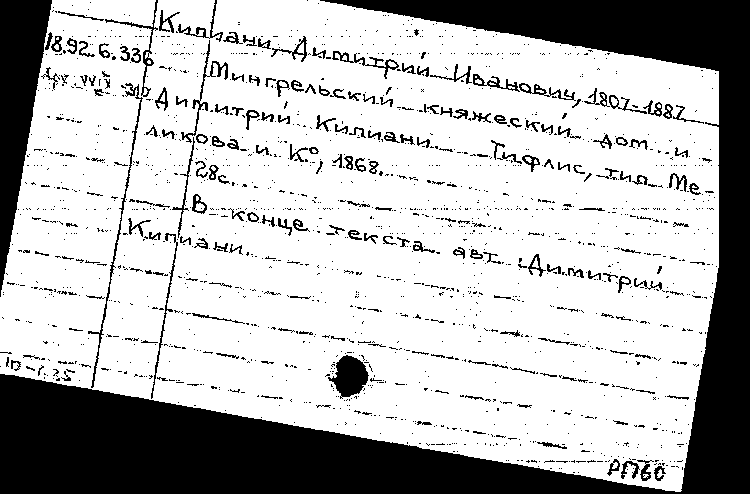 Кипиани, Димитрий Иванович, 1807-1887
18.92.6.336
Мингрельский княжеский дом и
Димитрий Кипиани. Тифлис, тип. Ме-
ликова и К°, 1868.
28с.
В конце текста авт.: Димитрий
Кипиани.